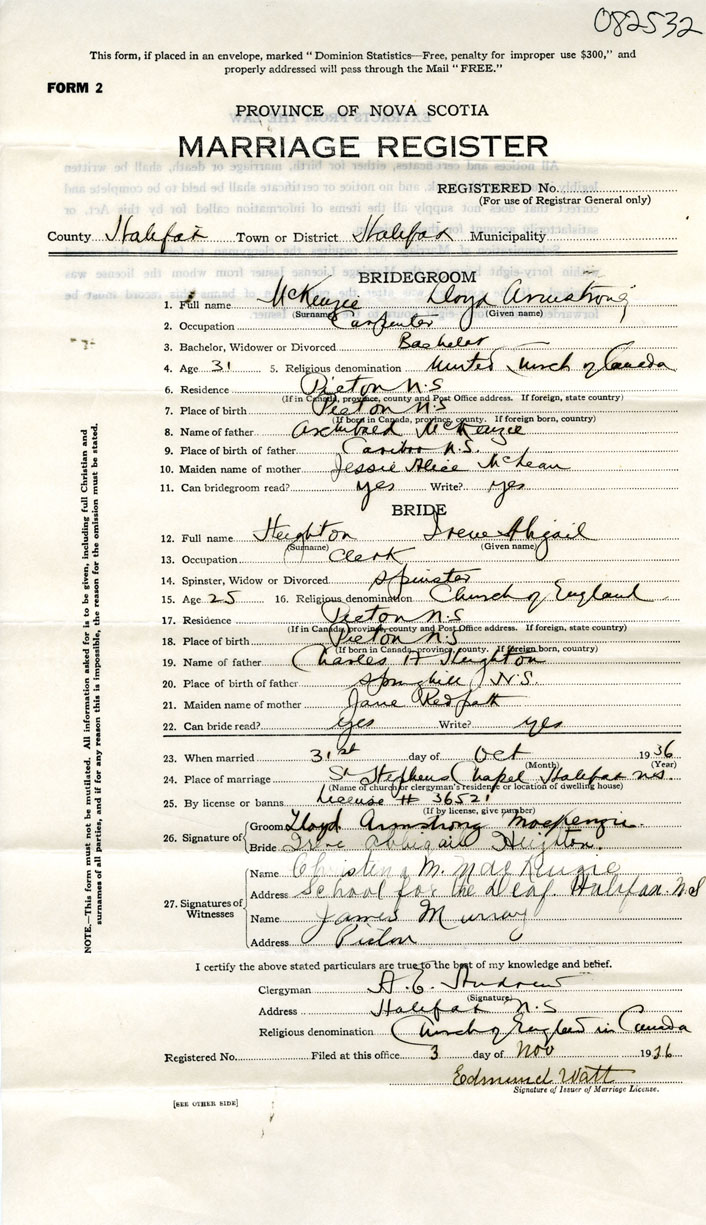 082532
This form, if placed in an envelope, marked "Dominion Statistics—Free, penalty for improper use $300," and
properly addressed will pass through the Mail "FREE."
FORM 2
PROVINCE OF NOVA SCOTIA
MARRIAGE REGISTER
REGISTERED No.
(For use of Registrar General only)
County Halifax Town or District Halifax Municipality
BRIDEGROOM
1. Full name McKenzie Lloyd Armstrong
(Surname) (Given name)
2. Occupation Carpenter
3. Bachelor, Widower or Divorced Bachelor
4. Age 31 5. Religious denomination United Church of Canada
6. Residence Pictou N.S
(If in Canada, province, county and Post Office address. If foreign, state country)
7. Place of birth Pictou N.S
(If born in Canada, province, county. If foreign born, country)
8. Name of father Archibald McKenzie
9. Place of birth of father Caribou N.S.
10. Maiden name of mother Jessie Alice McLean
11. Can bridegroom read? yes Write? yes
BRIDE
12. Full name Heighton Irene Abigail
(Surname) (Given name)
13. Occupation Clerk
14. Spinster, Widow or Divorced Spinster
15. Age 25 16. Religious denomination Church of England
17. Residence Pictou N.S
(If in Canada, province, county and Post Office address. If foreign, state country)
18. Place of birth Pictou N.S
(If born in Canada, province, county. If foreign born, country)
19. Name of father Charles H Heighton
20. Place of birth of father Springhill N.S.
21. Maiden name of mother Jane Redpath
22. Can bride read? yes Write? yes
23. When married 31st day of Oct 1936
(Month) (Year)
24. Place of marriage St Stephens Chapel Halifax N.S
(Name of church or clergyman's residence or location of dwelling house)
25. By license or banns License # 36521
(If by license, give number)
26. Signature of Groom Lloyd Armstrong MacKenzie.
Bride Irene Abbigail Heighton.
27. Signatures of Witnesses
Name Christina M. MacKenzie
Address School for the Deaf. Halifax. N.S
Name James Murray
Address Pictou
I certify the above stated particulars are true to the best of my knowledge and belief.
Clergyman A. E. Andrew
(Signature)
Address Halifax N.S
Religious denomination Church of England in Canada
Registered No. Filed at this office 3 day of Nov 1936
Edmund Watt
Signature of Issuer of Marriage License.
[SEE OTHER SIDE]
NOTE.—This form must not be mutilated. All information asked for is to be given, including full Christian and
surnames of all parties, and if for any reason this is impossible, the reason for the omission must be stated.